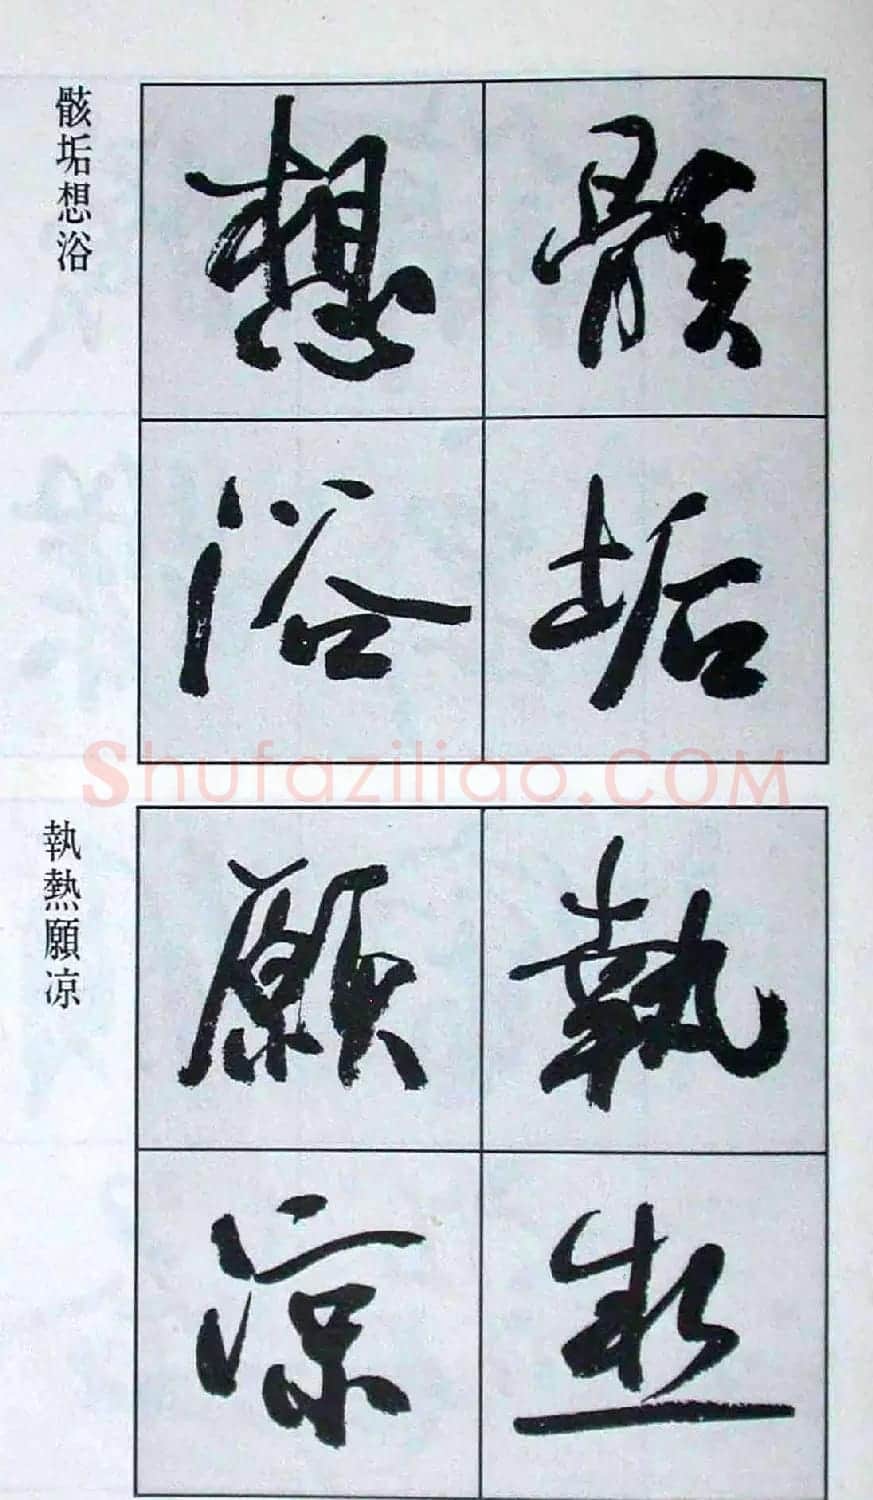 骸垢想浴
骸垢
想浴
Shufaziliao.COM
執熱願凉
執熱
願凉